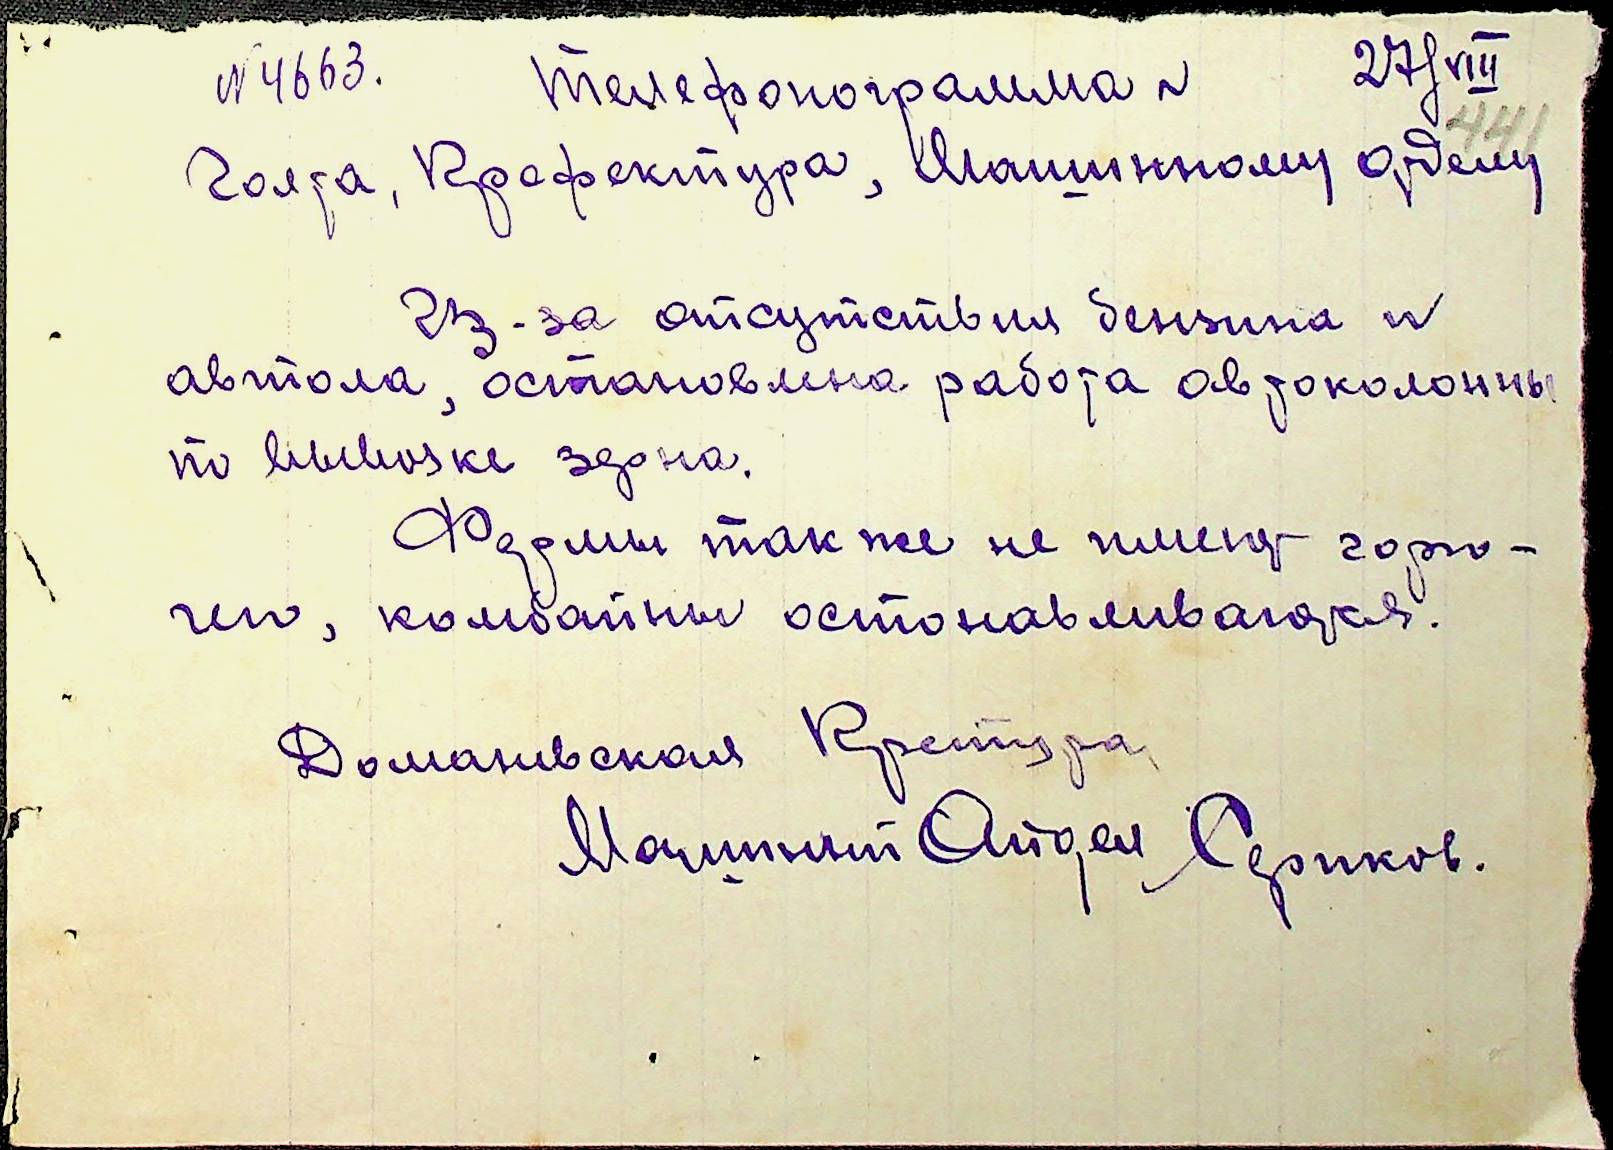 N 4663. Телефонограмма N 27/VIII
441
Голта, Префектура, Машинному отделу
Из-за отсутствия бензина и
автола, остановлена работа автоколонны
по вывозке зерна.
Фермы также не имеют горю-
чего, комбайны остонавливаются.
Доманевская Претура,
Машинный Отдел Сериков.